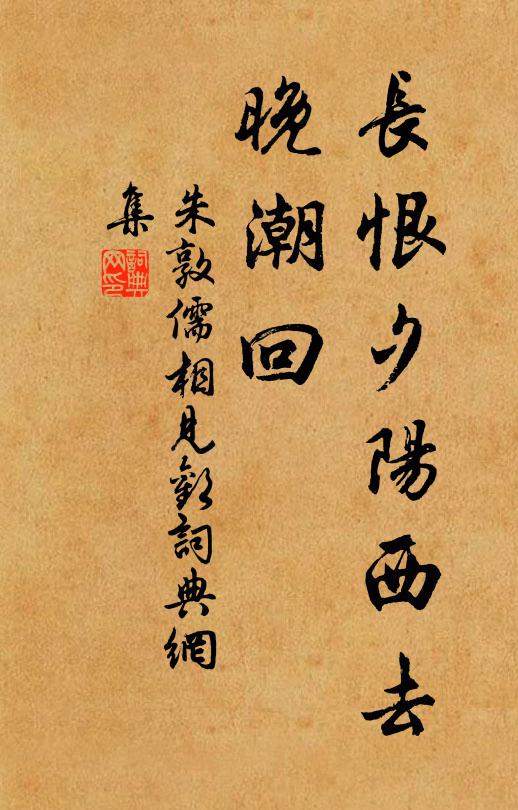 長恨夕陽西去
晚潮回
朱敦儒相見歡詞典網
集
詞典
网印